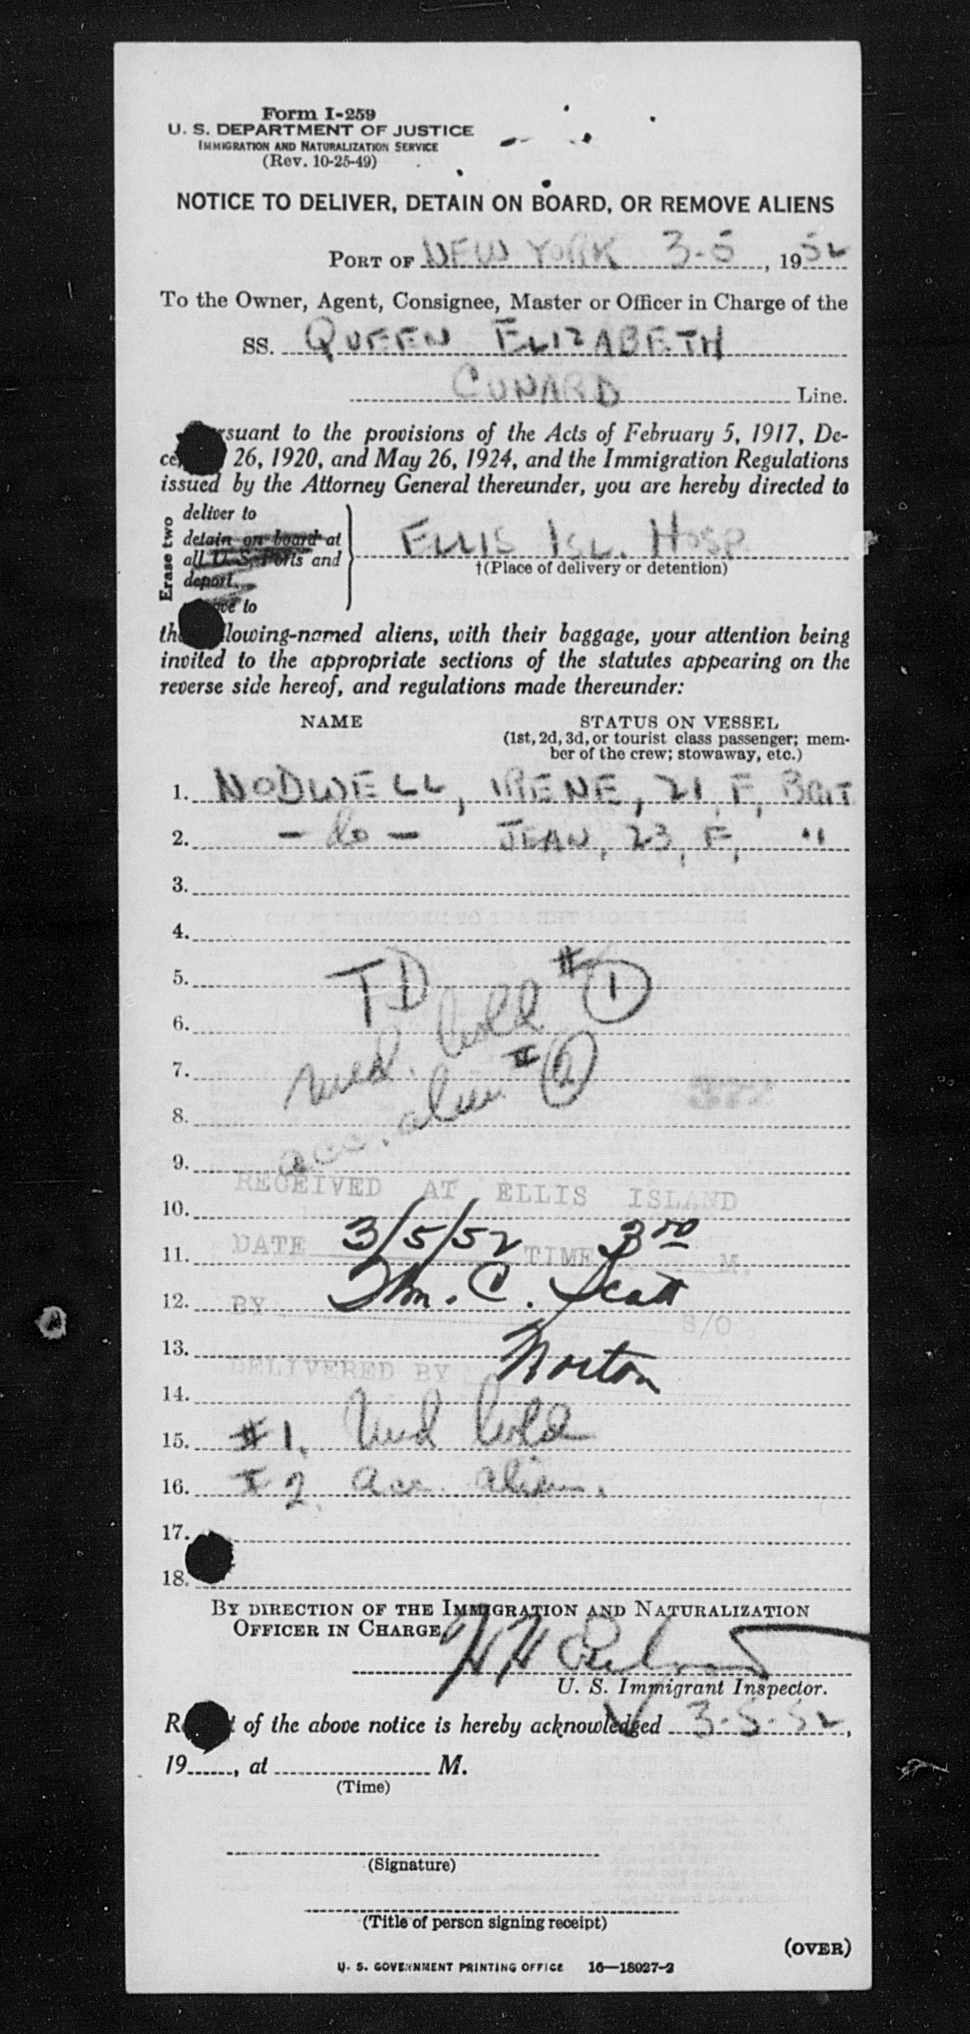 Form I-259
U. S. DEPARTMENT OF JUSTICE
IMMIGRATION AND NATURALIZATION SERVICE
(Rev. 10-25-49)
NOTICE TO DELIVER, DETAIN ON BOARD, OR REMOVE ALIENS
PORT OF NEW YORK 3-5, 1952
To the Owner, Agent, Consignee, Master or Officer in Charge of the
SS. QUEEN ELIZABETH
CUNARD Line.
suant to the provisions of the Acts of February 5, 1917, De-
ce 26, 1920, and May 26, 1924, and the Immigration Regulations
issued by the Attorney General thereunder, you are hereby directed to
Erase two
deliver to
detain on board at
all U. S. Ports and
deport
ve to
ELLIS ISL. HOSP.
†(Place of delivery or detention)
the llowing-named aliens, with their baggage, your attention being
invited to the appropriate sections of the statutes appearing on the
reverse side hereof, and regulations made thereunder:
NAME STATUS ON VESSEL
(1st, 2d, 3d, or tourist class passenger; mem-
ber of the crew; stowaway, etc.)
1. NODWELL, IRENE, 21, F, BRIT
2. - do - JEAN, 23, F, "
3.
4.
5. TD
6. med. hold #1
7.
8. acc. alien #2
9.
RECEIVED AT ELLIS ISLAND
10.
DATE 3/5/52 TIME 3 00 M.
11.
12. BY Thm. C. Scatt S/O
13. Norton
DELIVERED BY
14.
15. #1. Med hold
16. #2. acc. alien.
17.
18.
BY DIRECTION OF THE IMMIGRATION AND NATURALIZATION
OFFICER IN CHARGE,
U. S. Immigrant Inspector.
R t of the above notice is hereby acknowledged 3-5-52,
19......, at M.
(Time)
(Signature)
(Title of person signing receipt)
(OVER)
U. S. GOVERNMENT PRINTING OFFICE 16—18927-2